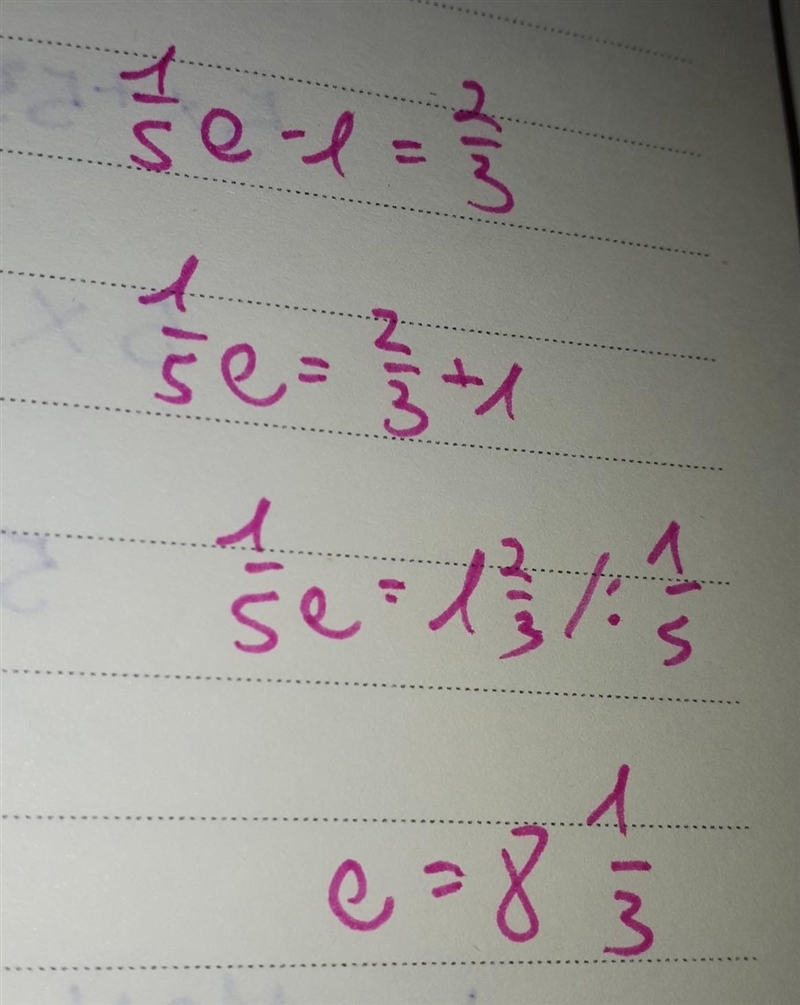 1/5 e - 1 = 2/3
1/5 e = 2/3 + 1
1/5 e = 1 2/3 / : 1/5
e = 8 1/3